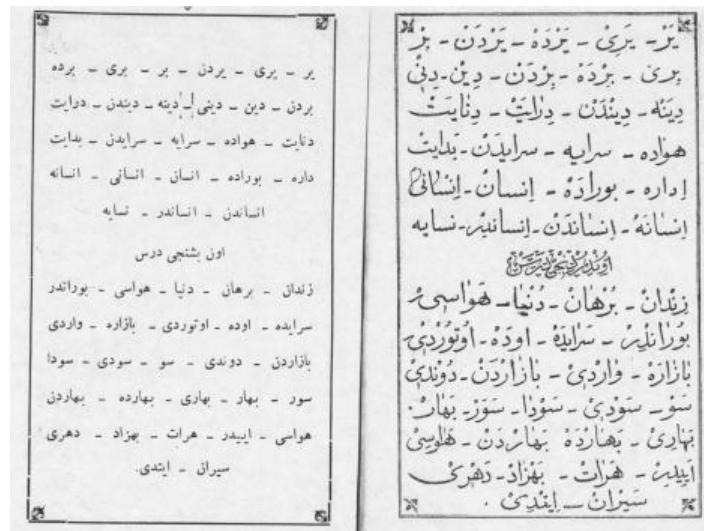 یَرْ ـ یَرِیْ ـ یَرْدَهْ ـ یَرْدَنْ ـ بِرْ
بِرِیْ ـ بِرْدَهْ ـ بِرْدَنْ ـ دِیْنْ ـ دِینِیْ
دِینَه ـ دِینْدَنْ ـ دِرَایَتْ ـ دِنَایَتْ
هواده ـ سرایه ـ سرایدَنْ ـ بَدایت
اِداره ـ بوراده ـ اِنسانْ ـ اِنْسَانِیْ
اِنْسَانَهْ ـ اِنسَاندَنْ ـ اِنساندِرْ ـ نسایه
زِنْدَانْ ـ بُرْهَانْ ـ دُنْیَا ـ هَوَاسِیْ
بُورَانْدِرْ ـ سَرَایدَهْ ـ اودَهْ ـ اُوتُورْدِیْ
بَازَارَهْ ـ وَارْدِیْ ـ بَازَارْدَنْ ـ دُونْدِیْ
سَوْ ـ سَوْدِیْ ـ سَوْدَا ـ سَوَرْ ـ بَهَارْ
بَهَارِیْ ـ بَهَارْدَهْ ـ بَهَارْدَنْ ـ هَوَاسِیْ
اَییدِرْ ـ هَرَاتْ ـ بَهْزَادْ ـ دَهْرِیْ
سَیْرَانْ ـ اِیتْدِیْ .
یر ـ یری ـ یردن ـ بر ـ بری ـ برده
بردن ـ دین ـ دینی ـ دینه ـ دیندن ـ درایت
دنایت ـ هواده ـ سرایه ـ سرایدن ـ بدایت
داره ـ بوراده ـ انسان ـ انسانی ـ انسانه
انساندن ـ انساندر ـ نسایه
اون بشنجی درس
زندان ـ برهان ـ دنیا ـ هواسی ـ بوراندر
سرایده ـ اوده ـ اوتوردی ـ بازاره ـ واردی
بازاردن ـ دوندی ـ سو ـ سودی ـ سودا
سور ـ بهار ـ بهاری ـ بهارده ـ بهاردن
هواسی ـ اییدر ـ هرات ـ بهزاد ـ دهری
سیران ـ ایتدی.